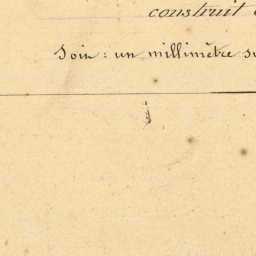 construit
Soit : un millimètre